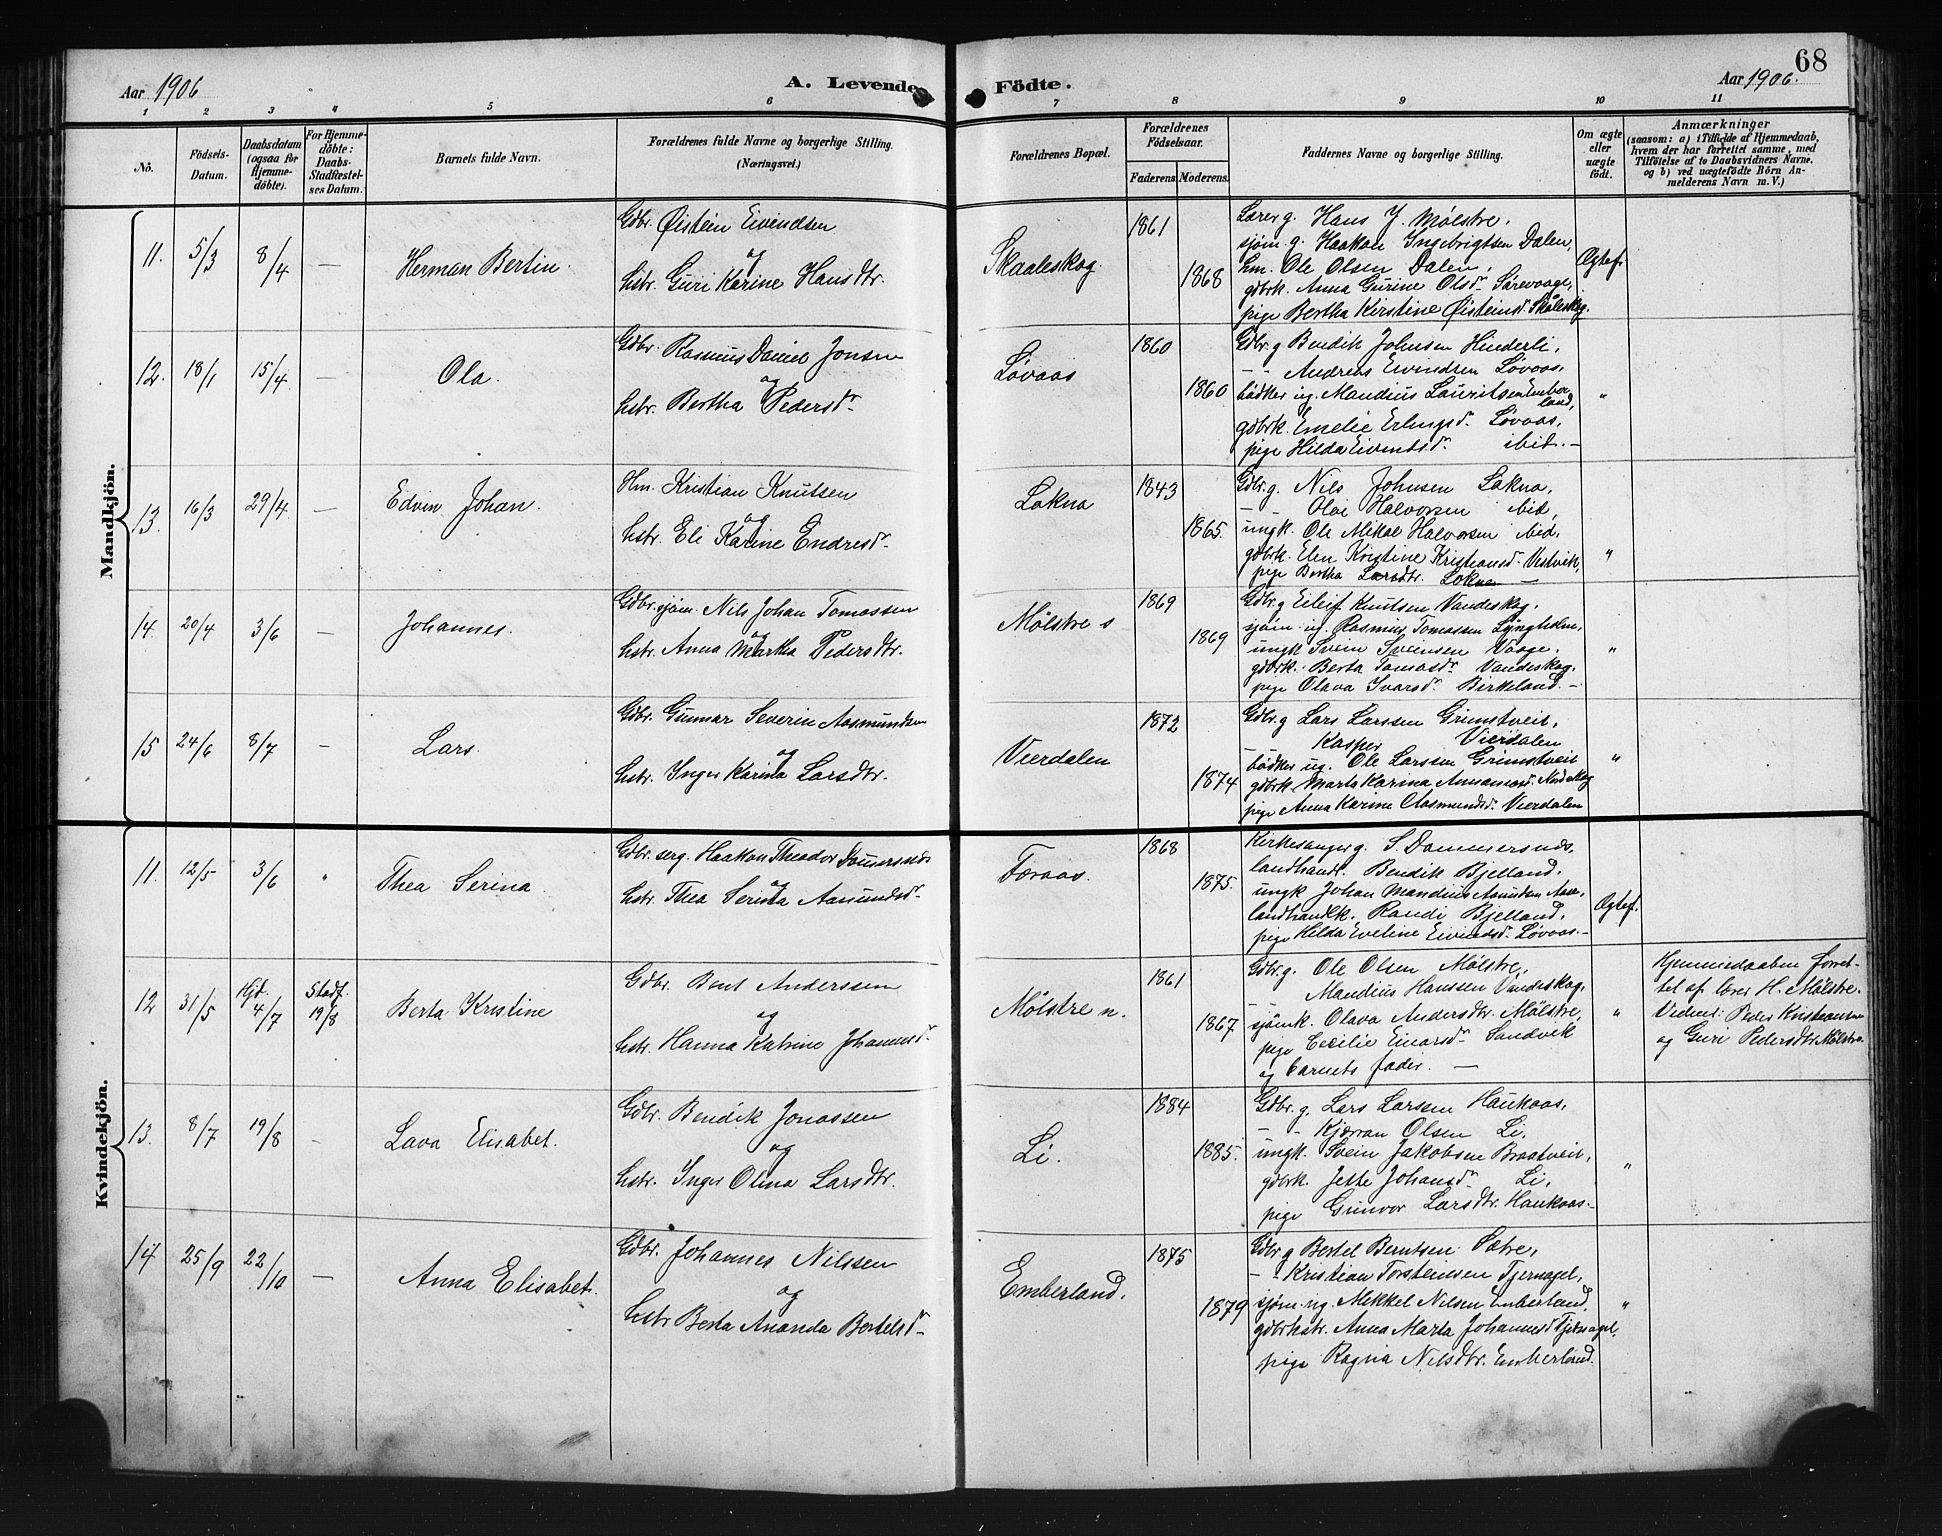 68
Aar 1906
A. Levende Födte.
Aar 1906.
1 2 3 4 5 6 7 8 9 10 11
No.
Födsels-Datum.
Daabsdatum (ogsaa for Hjemmedöbte).
For Hjemmedöbte: Daabs-Stadfæstelses Datum.
Barnets fulde Navn.
Forældrenes fulde Navne og borgerlige Stilling.
(Næringsvei.)
Forældrenes Bopæl.
Forældrenes Födselsaar.
Faderens. Moderens.
Faddernes Navne og borgerlige Stilling.
Om ægte eller uægte födt.
Anmærkninger
(saasom: a) i Tilfælde af Hjemmedaab,
hvem der har forrettet samme, med
Tilföielse af to Daabsvidners Navne.
og b) ved uægtefödte Börn An-
melderens Navn m. V.)
Mandkjön.
11. 5/3 8/4 — Herman Bertin.
Gdbr. Øistein Eivindsen
og
hstr. Guri Karine Hansdtr.
Skaaleskog
1861
1868
Lærer g. Hans J. Mølstre,
sjøm. g. Haakon Ingebrigtsen Dalen,
hm. Ole Olsen Dalen,
gdbrk. Anna Gurine Olsd. Særevaage,
pige Bertha Kirstine Øisteinsd. Skåleskog.
Ægtef.
12. 18/1 15/4 — Ola.
Gdbr. Rasmus Daniel Jonsen
og
hstr. Bertha Pedersdr.
Løvaas
1860
1860
Gdbr. g Bendik Johnsen Hinderli,
- - Andreas Eivindsen Løvaas,
bødker ug. Mandius Lauritsen Ember-
land,
gdbrk. Emelie Erlingsd. Løvaas,
pige Hilda Eivindsdr. ibid. —
"
13. 16/3 29/4. — Edvin Johan.
Hm. Kristian Knutsen
og
hstr. Eli Karine Endresdr.
Lokna
1843
1865.
Gdbr. g. Nils Johnsen Lokna,
- - Olai Halvorsen ibid,
ungk. Ole Mikal Halvorsen ibid.
gdbrk. Elen Kristine Kristiansd. Vestvik,
pige Bertha Larsdtr. Lokna —
"
14. 20/4 3/6 — Johannes.
Gdbr. sjøm. Nils Johan Tomassen
og
hstr. Anna Martha Pedersdtr.
Mølstre s
1869
1869
Gdbr. g Eileif Knutsen Vandeskog,
sjøm. ug. Rasmus Tomassen Lyngholm,
ungk Svein Sveinsen Vaage,
gdbrk. Berta Tomasdr. Vandeskog.
pige Olava Ivarsdr. Birkeland. —
"
15 24/6 8/7 — Lars.
Gdbr. Gunnar Severin Aasmundsen
og
hstr. Inger Karina Larsdtr.
Vierdalen
1872
1874
Gdbr. g Lars Larssen Grimstveit,
— Kasper Vierdalen
bødker ug. Ole Larssen Grimstveit
gdbrk. Marta Karina
pige Anna Karine Aasmundsd. Vierdalen
"
Kvindekjön.
11. 12/5 3/6 " Thea Serina
Gdbr. serg. Haakon Theodor
og
hstr. Thea Serina Aamundsdr.
Færaas.
1868
1875.
Kirkesanger g. S.
landhandl. Bendik Bjelland.
ungk Johan Mandius Aamundsen
landhandlk. Randi Bjelland,
pige Hilda Eveline Eivindsd. Løvaas. —
Ægtef.
12 31/5 Hjd. 4/7 Stadf. 19/8 Berta Kristine
Gdbr. Bent Anderssen
og
hstr. Hanna Katrine Johannesdr.
Mølstre n.
1861
1867
Gdbr. g. Ole Olsen Mølstre,
Mandius Hanssen Vandeskog,
sjømk. Olava Andersdtr. Mølstre,
pige Cecilie Einarsdr. Sandvik
og barnets fader. —
"
Hjemmedaaben forret-
tet af lærer H. Mølstre.
Vidner: Peder Kristiansen
og Guri Pedersdtr. Mølstre.
13. 8/7 19/8 — Lava Elisabet.
Gdbr. Bendik Jonassen
og
hstr. Inger Olina Larsdtr.
Li.
1884
1885.
Gdbr. g. Lars Larssen Haukaas,
- - Kjærran Olsen Li,
ungk. Svein Jakobsen Braatveit,
gdbrk. Jette Johansdr. Li,
pige Gunvor Larsdtr. Haukaas. —
"
14 25/9 22/10 — Anna Elisabet.
Gdbr. Johannes Nilssen
og
hstr Berta Ananda Bertelsdr.
Emberland.
1875
1879
Gdbr g Bertel Berntsen Sætre,
- - Kristian Torsteinsen Tjernagel,
sjøm. ug. Mikkel Nilsen Emberland,
gdbrkstr. Anna Marta Johannesd Tjernagel,
pige Ragna Nilsdtr. Emberland.
"